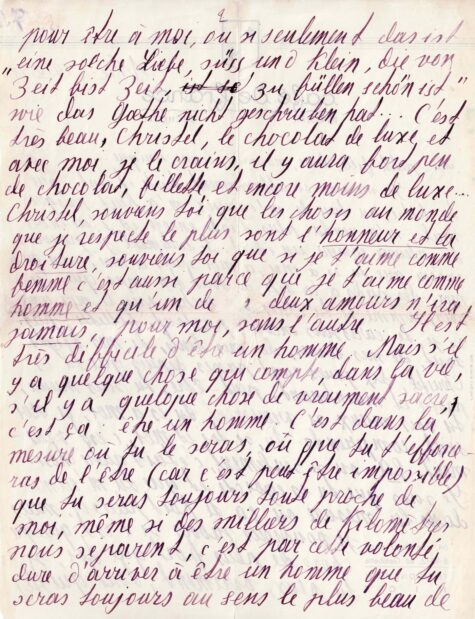 2
pour être à moi, ou si seulement das ist
„eine solche Liebe, süss und klein, die von
Zeit bist Zeit ist so zu füllen schön ist"
wie das Goethe nicht geschrieben hat... C'est
très beau, Christel, le chocolat de luxe et
avec moi, je le crains, il y aura bor peu
de chocolat, billette et encore moins de luxe...
Christel, souviens toi, que les choses au monde
que je respecte le plus sont l'honneur et la
droiture, souviens toi que si je t'aime comme
femme c'est aussi parce que je t'aime comme
homme et qu'un de s deux amours n'ira
jamais, pour moi, sans l'autre Il est
très difficile d'être un homme. Mais s'il
y a quelque chose qui compte, dans la vie,
s'il y a quelque chose de vraiment sacré,
c'est ça: être un homme. C'est dans la
mesure où tu le seras, où que tu t'efforce-
ras de l'être (car c'est peut être impossible)
que tu seras toujours toute proche de
moi, même si des milliers de Kilometres
nous séparent, c'est par cette volonté
dure d'arriver à être un homme que tu
seras toujours au sens le plus beau de